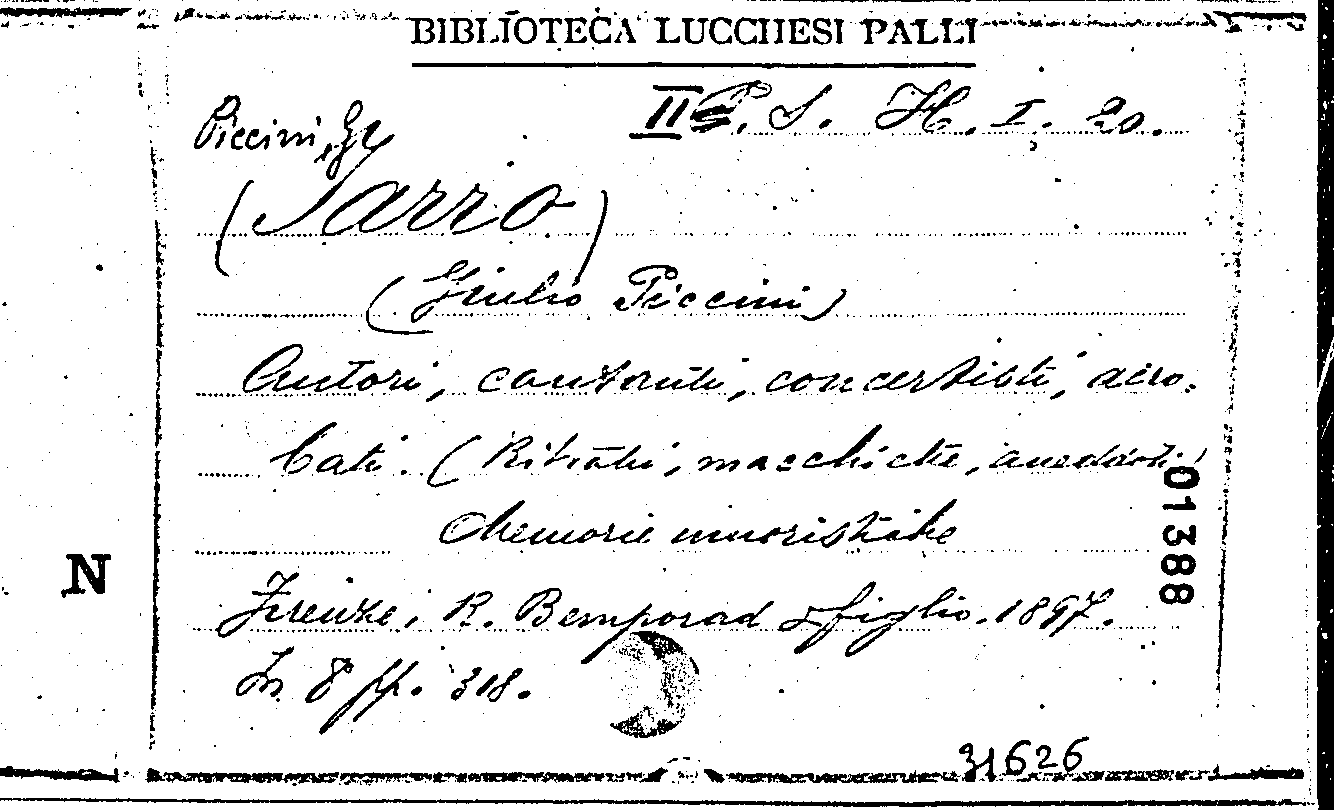 BIBLIOTECA LUCCHESI PALLI
II P. S. H. I. 20.
Piccini,
(Jarro)
(Giulio Piccini)
Autori, cantanti, concertisti, acro-
bati. (Ritratti, macchiette, aneddoti)
Memorie umoristiche
Firenze, R. Bemporad & figlio. 1897.
In 8 pp. 318.
01388
N
31626